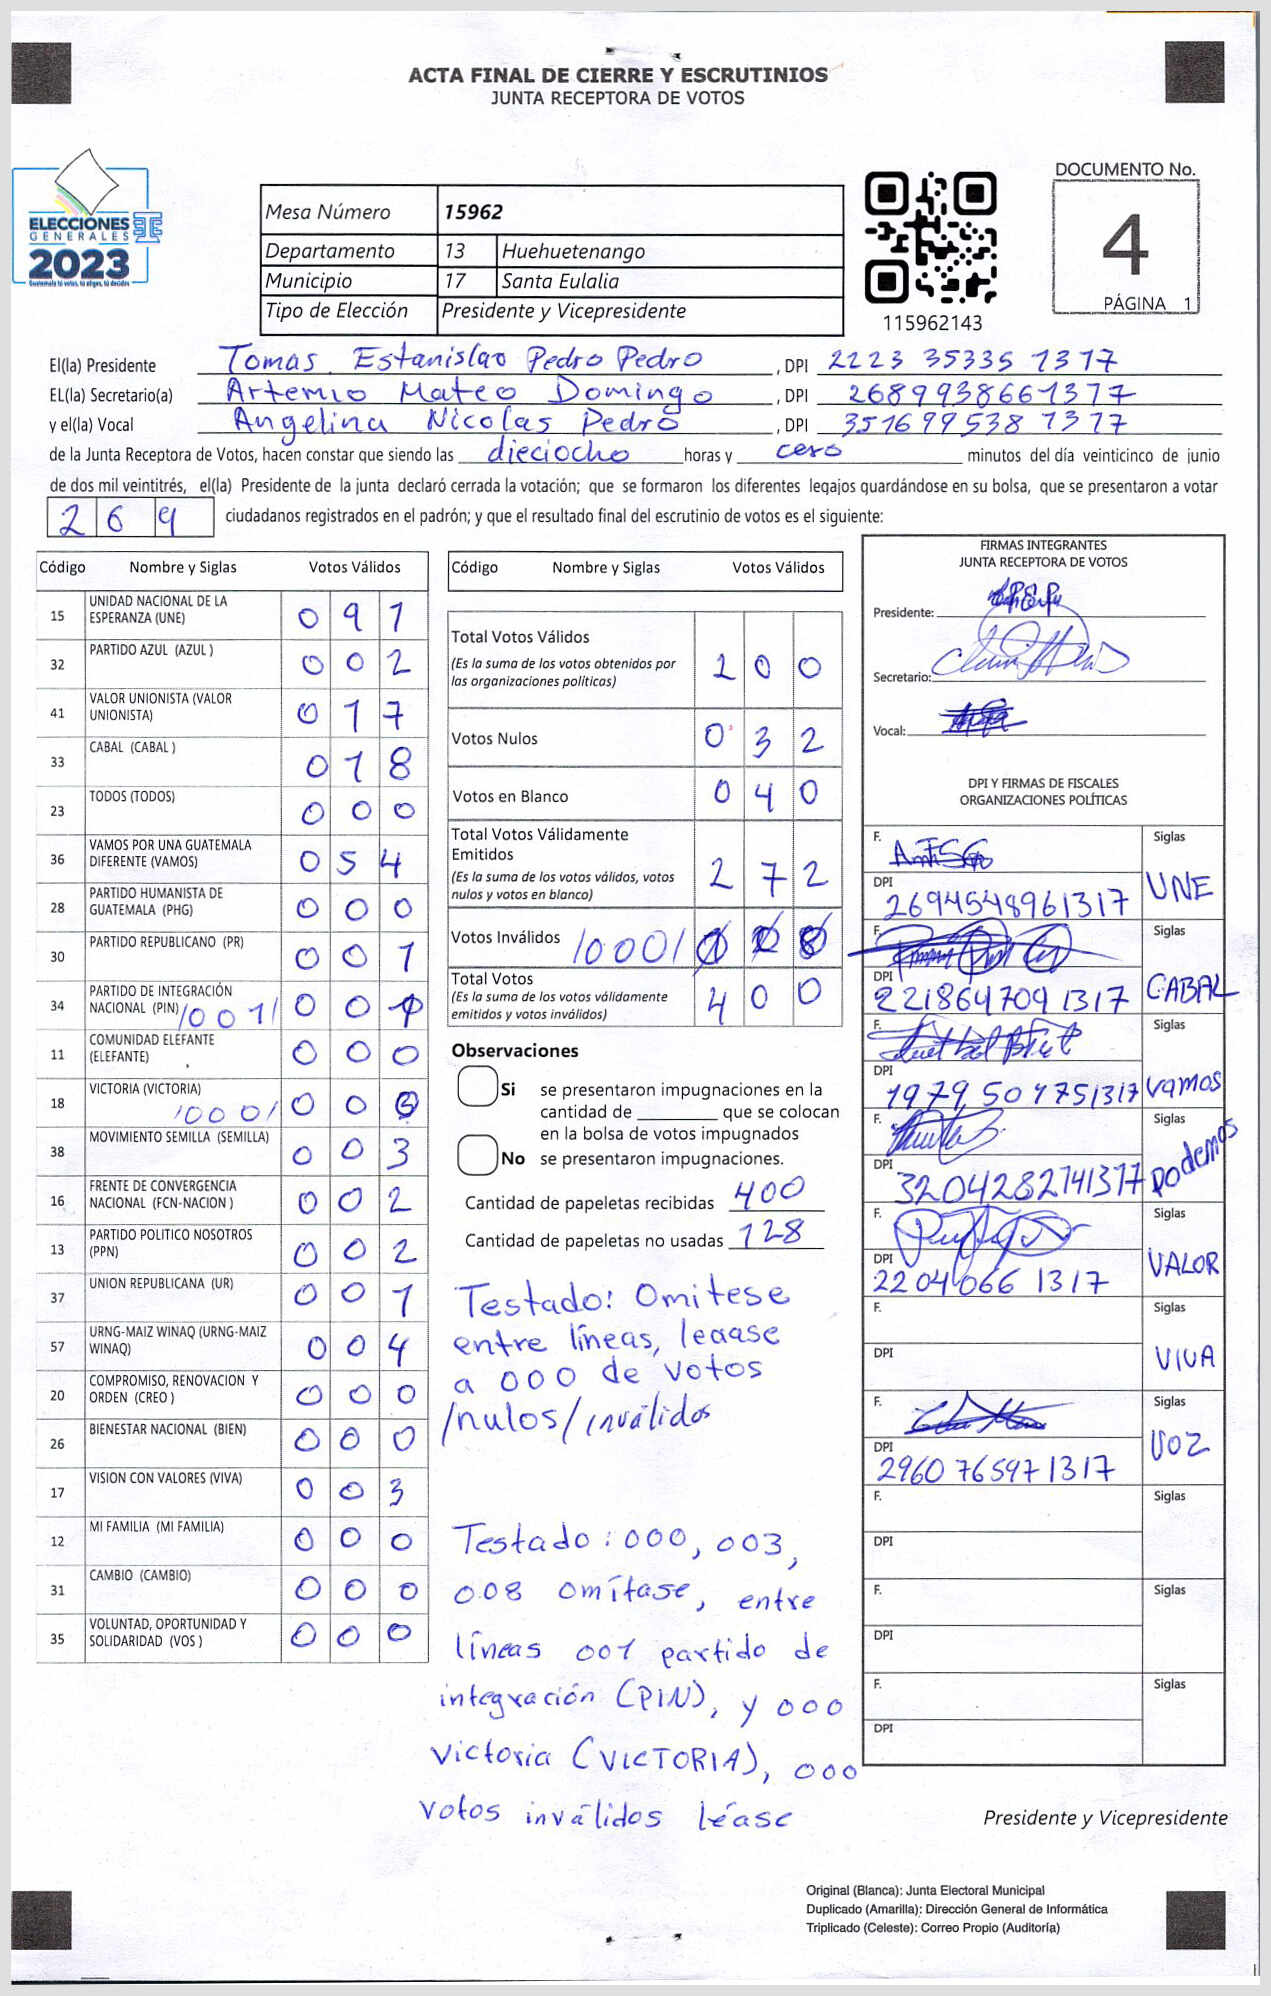 ACTA FINAL DE CIERRE Y ESCRUTINIOS
JUNTA RECEPTORA DE VOTOS
ELECCIONES
GENERALES
2023
Guatemala tú votas, tú eliges, tú decides
Mesa Número 15962
Departamento 13 Huehuetenango
Municipio 17 Santa Eulalia
Tipo de Elección Presidente y Vicepresidente
115962143
DOCUMENTO No.
4
PÁGINA 1
El(la) Presidente Tomas Estanislao Pedro Pedro, DPI 2223 35335 1317
EL(la) Secretario(a) Artemio Mateo Domingo, DPI 2689938661377
y el(la) Vocal Angelina Nicolas Pedro, DPI 351699538 1317
de la Junta Receptora de Votos, hacen constar que siendo las dieciocho horas y cero minutos del día veinticinco de junio
de dos mil veintitrés, el(la) Presidente de la junta declaró cerrada la votación; que se formaron los diferentes legajos guardándose en su bolsa, que se presentaron a votar
269 ciudadanos registrados en el padrón; y que el resultado final del escrutinio de votos es el siguiente:
Código Nombre y Siglas Votos Válidos
15 UNIDAD NACIONAL DE LA ESPERANZA (UNE) 091
32 PARTIDO AZUL (AZUL ) 002
41 VALOR UNIONISTA (VALOR UNIONISTA) 017
33 CABAL (CABAL ) 018
23 TODOS (TODOS) 000
36 VAMOS POR UNA GUATEMALA DIFERENTE (VAMOS) 054
28 PARTIDO HUMANISTA DE GUATEMALA (PHG) 000
30 PARTIDO REPUBLICANO (PR) 001
34 PARTIDO DE INTEGRACIÓN NACIONAL (PIN) /001/ 00
11 COMUNIDAD ELEFANTE (ELEFANTE) 000
18 VICTORIA (VICTORIA) /000/ 00
38 MOVIMIENTO SEMILLA (SEMILLA) 003
16 FRENTE DE CONVERGENCIA NACIONAL (FCN-NACION ) 002
13 PARTIDO POLITICO NOSOTROS (PPN) 002
37 UNION REPUBLICANA (UR) 001
57 URNG-MAIZ WINAQ (URNG-MAIZ WINAQ) 004
20 COMPROMISO, RENOVACION Y ORDEN (CREO ) 000
26 BIENESTAR NACIONAL (BIEN) 000
17 VISION CON VALORES (VIVA) 003
12 MI FAMILIA (MI FAMILIA) 000
31 CAMBIO (CAMBIO) 000
35 VOLUNTAD, OPORTUNIDAD Y SOLIDARIDAD (VOS ) 000
Código Nombre y Siglas Votos Válidos
Total Votos Válidos 200
(Es la suma de los votos obtenidos por
las organizaciones políticas)
Votos Nulos 032
Votos en Blanco 040
Total Votos Válidamente
Emitidos 272
(Es la suma de los votos válidos, votos
nulos y votos en blanco)
Votos Inválidos /000/
Total Votos 400
(Es la suma de los votos válidamente
emitidos y votos inválidos)
Observaciones
Si se presentaron impugnaciones en la
cantidad de ________ que se colocan
en la bolsa de votos impugnados
No se presentaron impugnaciones.
Cantidad de papeletas recibidas 400
Cantidad de papeletas no usadas 128
Testado: Omitese
entre líneas, leaase
a 000 de votos
/nulos/inválidos
Testado: 000, 003,
008 omítase, entre
líneas 001 partido de
integración (PIN), y 000
victoria (VICTORIA), 000
votos inválidos léase
FIRMAS INTEGRANTES
JUNTA RECEPTORA DE VOTOS
Presidente:
Secretario:
Vocal:
DPI Y FIRMAS DE FISCALES
ORGANIZACIONES POLÍTICAS
F. Siglas
DPI 2694548961317 UNE
F. Siglas
DPI 221864709 1317 CABAL
F. Siglas
DPI 1979,504751317 vamos
F. Siglas
DPI 3204282741317 podemos
F. Siglas
DPI 2204066 1317 VALOR
F. Siglas
DPI VIVA
F. Siglas
DPI 2960 76597 1317 VOZ
F. Siglas
DPI
F. Siglas
DPI
F. Siglas
DPI
Presidente y Vicepresidente
Original (Blanca): Junta Electoral Municipal
Duplicado (Amarilla): Dirección General de Informática
Triplicado (Celeste): Correo Propio (Auditoría)